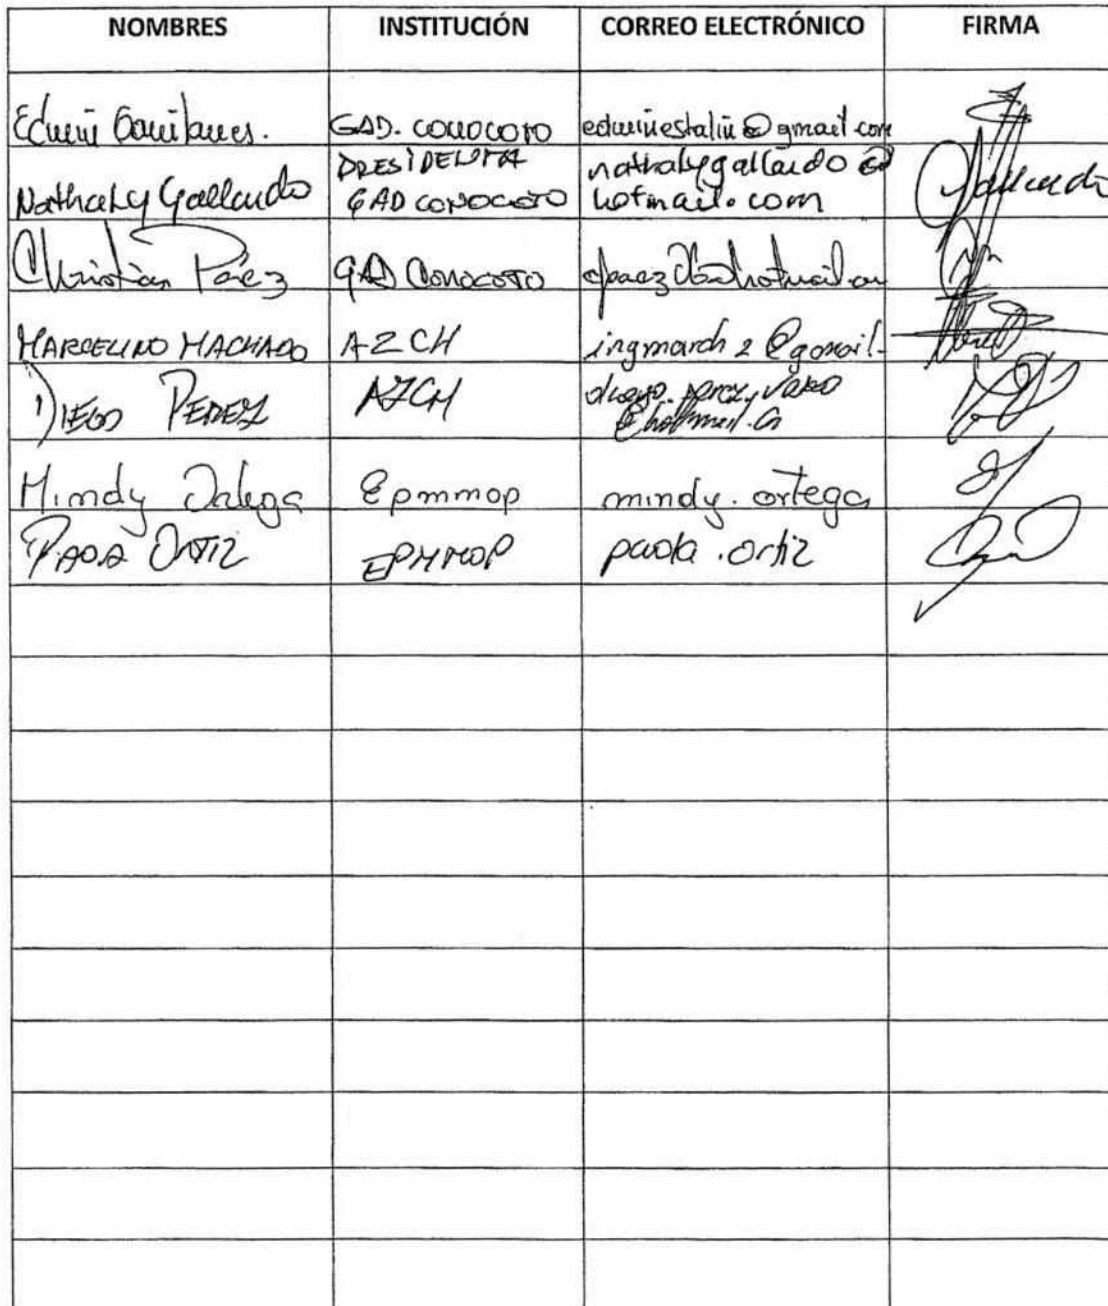 NOMBRES INSTITUCIÓN CORREO ELECTRÓNICO FIRMA
Edwin GAD. CONOCOTO edwinestalin@gmail.com
Nathaly Gallardo PRESIDENTA GAD CONOCOTO nathalygallardo@
hotmail.com Gallardo
Christian Páez GAD CONOCOTO
MARCELINO MACHADO AZCH ingmarch2@gmail.
DIEGO PEREZ AZCH diego.perez
@hotmail.
Mindy Ortega Epmmop mindy.ortega
PAOLA ORTIZ EPMMOP paola.ortiz